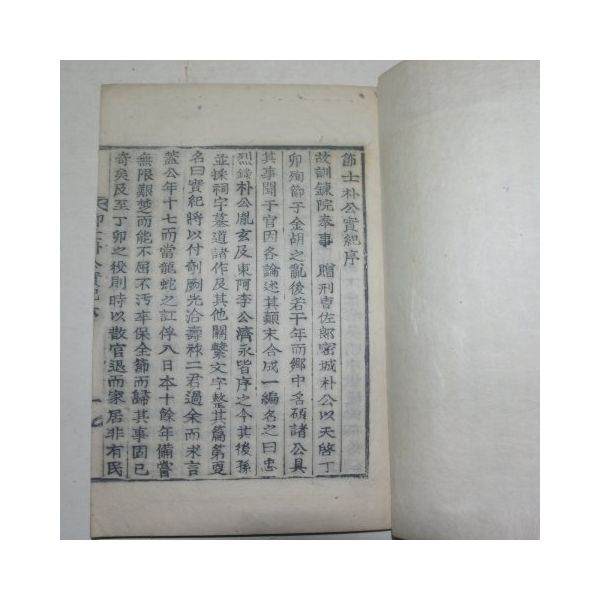 節士朴公實紀序
故訓鍊院奉事 贈刑曺佐郎密城朴公以天啓丁
卯殉節于金胡之亂後若干年而鄕中名碩諸公具
其事聞于官因各論述其顛末合成一編名之曰忠
烈錄朴公胤玄及東阿李公濟永皆序之今其後孫
並採祠宇墓道諸作及其他關繫文字整其篇第更
名曰實紀將以付剞劂光洽壽祿二君過余而求言
蓋公年十七而當龍蛇之訌俘入日本十餘年備嘗
無限艱楚而能不屈不汚卒保全節而歸其事固已
奇矣及至丁卯之役則時以散官退而家居非有民